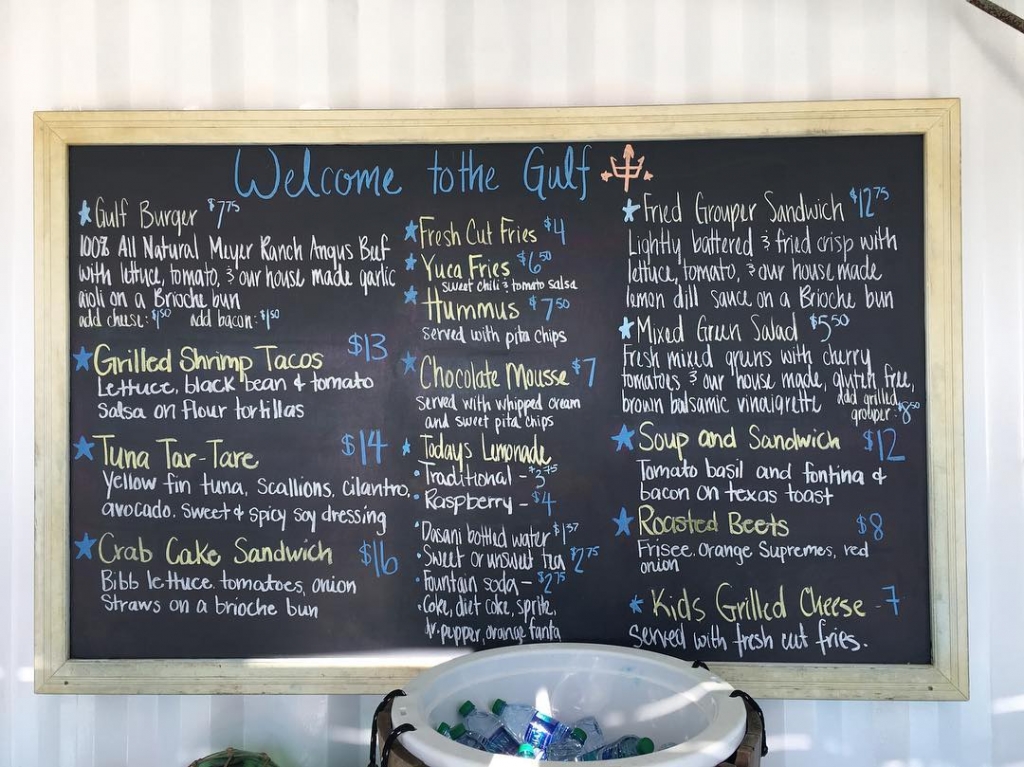 Welcome to the Gulf
Gulf Burger $7.75
100% All Natural Meyer Ranch Angus Beef
with lettuce, tomato, & our house made garlic
aioli on a Brioche bun
add cheese: $1.50 add bacon: $1.50
Grilled Shrimp Tacos $13
Lettuce, black bean & tomato
Salsa on flour tortillas
Tuna Tar-Tare $14
Yellow fin tuna, Scallions, cilantro,
avocado. sweet & spicy soy dressing
Crab Cake Sandwich $16
Bibb lettuce, tomatoes, onion
Straws on a brioche bun
Fresh Cut Fries $4
Yuca Fries $6.50
sweet chili & tomato salsa
Hummus $7.50
served with pita chips
Chocolate Mousse $7
Served with whipped cream
and sweet pita chips
Todays Lemonade
Traditional - $3.75
Raspberry - $4
Dasani bottled water $1.37
Sweet or unsweet tea $2.75
Fountain soda - $2.75
Coke, diet coke, sprite,
dr. pepper, orange fanta
Fried Grouper Sandwich $12.75
Lightly battered & fried crisp with
lettuce, tomato, & our house made
lemon dill sauce on a Brioche bun
Mixed Green Salad $5.50
Fresh mixed gruns with cherry
tomatoes & our house made, gluten free,
brown balsamic vinaigrette add grilled
grouper: $8.50
Soup and Sandwich $12
Tomato basil and fontina &
bacon on texas toast
Roasted Beets $8
Frisee. Orange Supremes, red
onion
Kids Grilled Cheese - 7
Served with fresh cut fries.